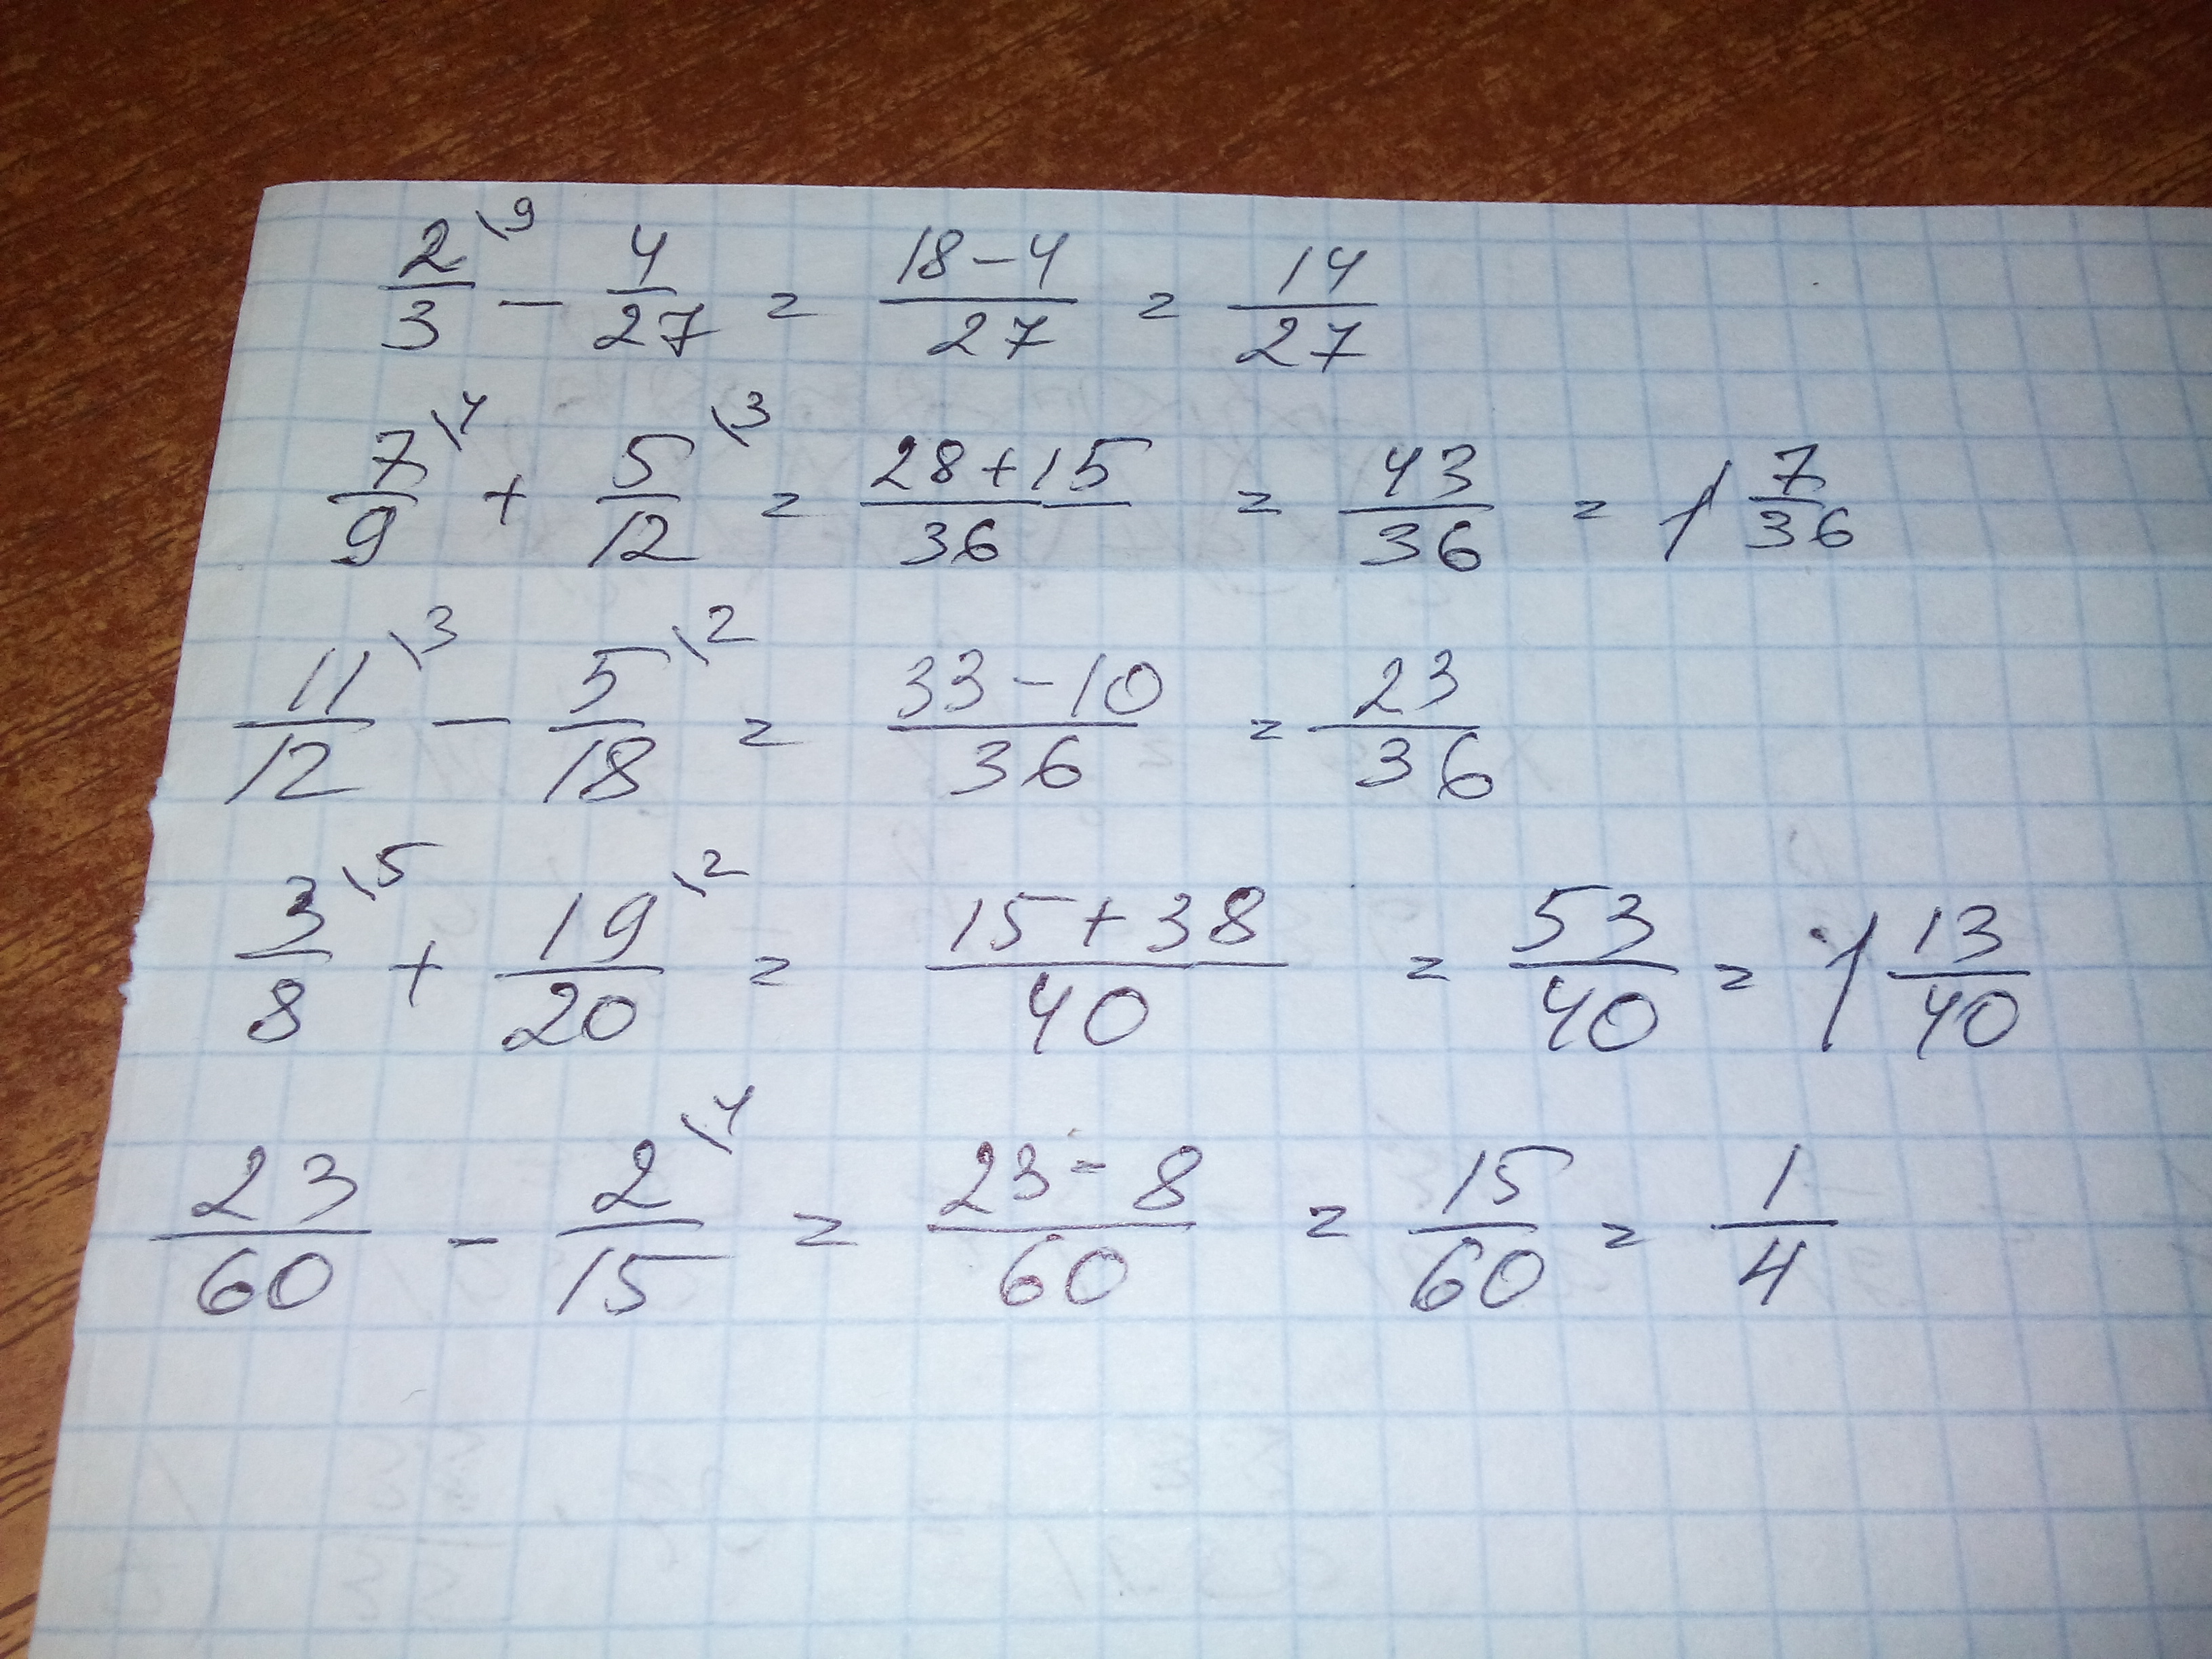 2/3 \9 - 4/27 = (18-4)/27 = 14/27
7/9 \4 + 5/12 \3 = (28+15)/36 = 43/36 = 1 7/36
11/12 \3 - 5/18 \2 = (33-10)/36 = 23/36
3/8 \5 + 19/20 \2 = (15+38)/40 = 53/40 = 1 13/40
23/60 - 2/15 \4 = (23-8)/60 = 15/60 = 1/4